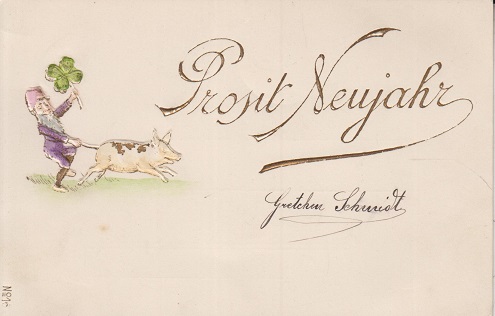 Prosit Neujahr
Gretchen Schmidt